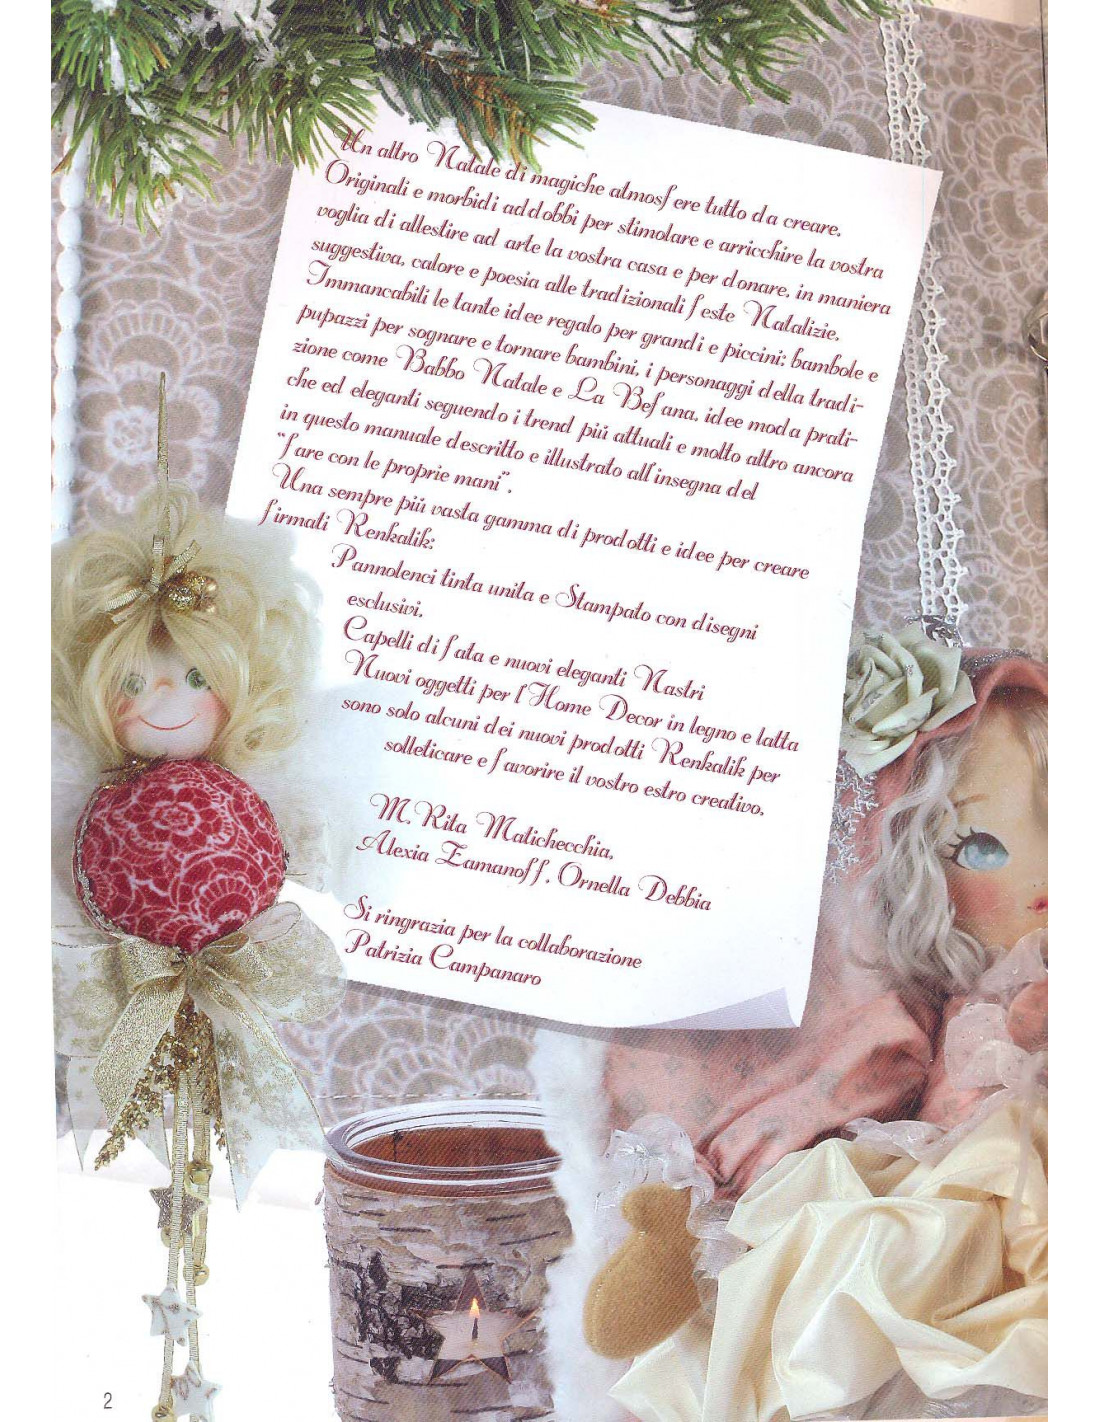 Un altro Natale di magiche atmosfere tutto da creare.
Originali e morbidi addobbi per stimolare e arricchire la vostra
voglia di allestire ad arte la vostra casa e per donare, in maniera
suggestiva, calore e poesia alle tradizionali feste Natalizie.
Immancabili le tante idee regalo per grandi e piccini: bambole e
pupazzi per sognare e tornare bambini, i personaggi della tradi-
zione come Babbo Natale e La Befana, idee moda prati-
che ed eleganti seguendo i trend più attuali e molto altro ancora
in questo manuale descritto e illustrato all'insegna del
"fare con le proprie mani".
Una sempre più vasta gamma di prodotti e idee per creare
firmati Renkalik:
Pannolenci tinta unita e Stampato con disegni
esclusivi.
Capelli di fata e nuovi eleganti Nastri
Nuovi oggetti per l'Home Decor in legno e latta
sono solo alcuni dei nuovi prodotti Renkalik per
solleticare e favorire il vostro estro creativo.
M.Rita Matichecchia,
Alexia Zamanoff, Ornella Debbia
Si ringrazia per la collaborazione
Patrizia Campanaro
2